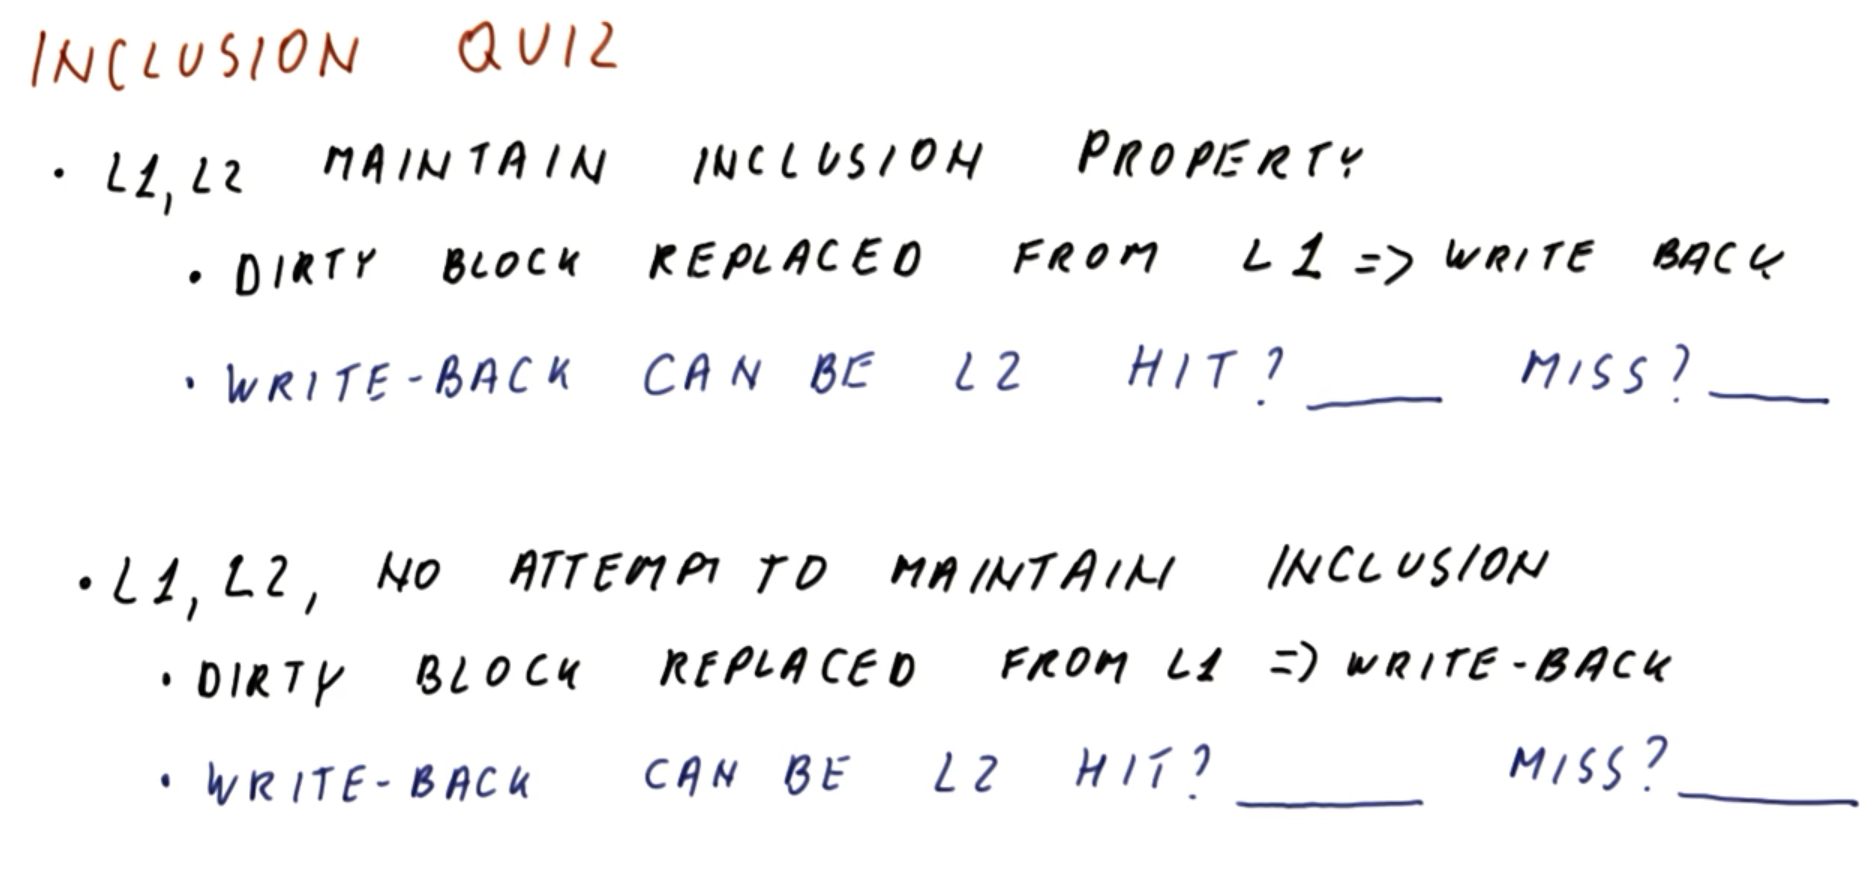 INCLUSION QUIZ
• L1, L2 MAINTAIN INCLUSION PROPERTY
• DIRTY BLOCK REPLACED FROM L1 => WRITE BACK
• WRITE-BACK CAN BE L2 HIT? ____ MISS? ____
• L1, L2, NO ATTEMPT TO MAINTAIN INCLUSION
• DIRTY BLOCK REPLACED FROM L1 => WRITE-BACK
• WRITE-BACK CAN BE L2 HIT? ____ MISS? ____